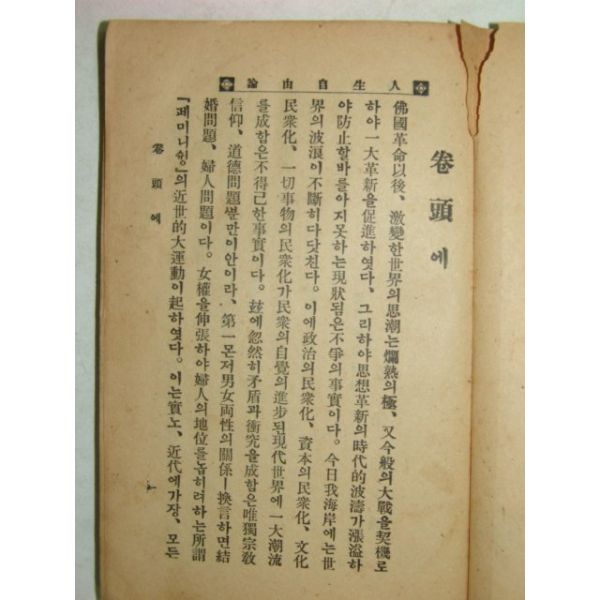 人生自由論
卷頭에
佛國革命以後、激變한世界의思潮는爛熟의極、又今般의大戰을契機로
하야一大革新을促進하엿다、그리하야思想革新의時代的波濤가漲溢하
야防止할바를아지못하는現狀됨은不爭의事實이다。今日我海岸에는世
界의波浪이不斷히다닷친다。이에政治의民衆化、資本의民衆化、文化
民衆化、一切事物의民衆化가民衆의自覺의進步된現代世界에一大潮流
를成함은不得已한事實이다。玆에忽然히矛盾과衝究을成함은唯獨宗敎
信仰、道德問題ᄲᅮᆫ만이안이라、第一몬저男女両性의關係ㅣ換言하면結
婚問題、婦人問題이다。女權을伸張하야婦人의地位를놉히려하는所謂
『페미니슴』의近世的大運動이起하엿다。이는實노、近代에가장、모든
卷頭에